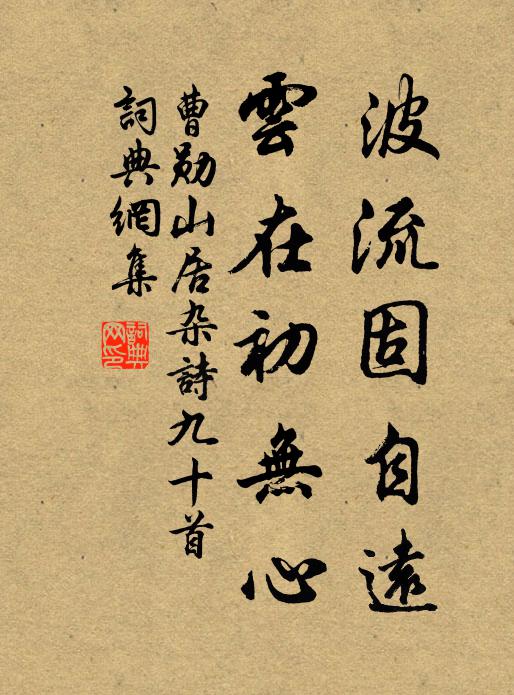 波流固自遠
雲在初無心
曹勛山居杂詩九十首
詞典網集
詞典網印